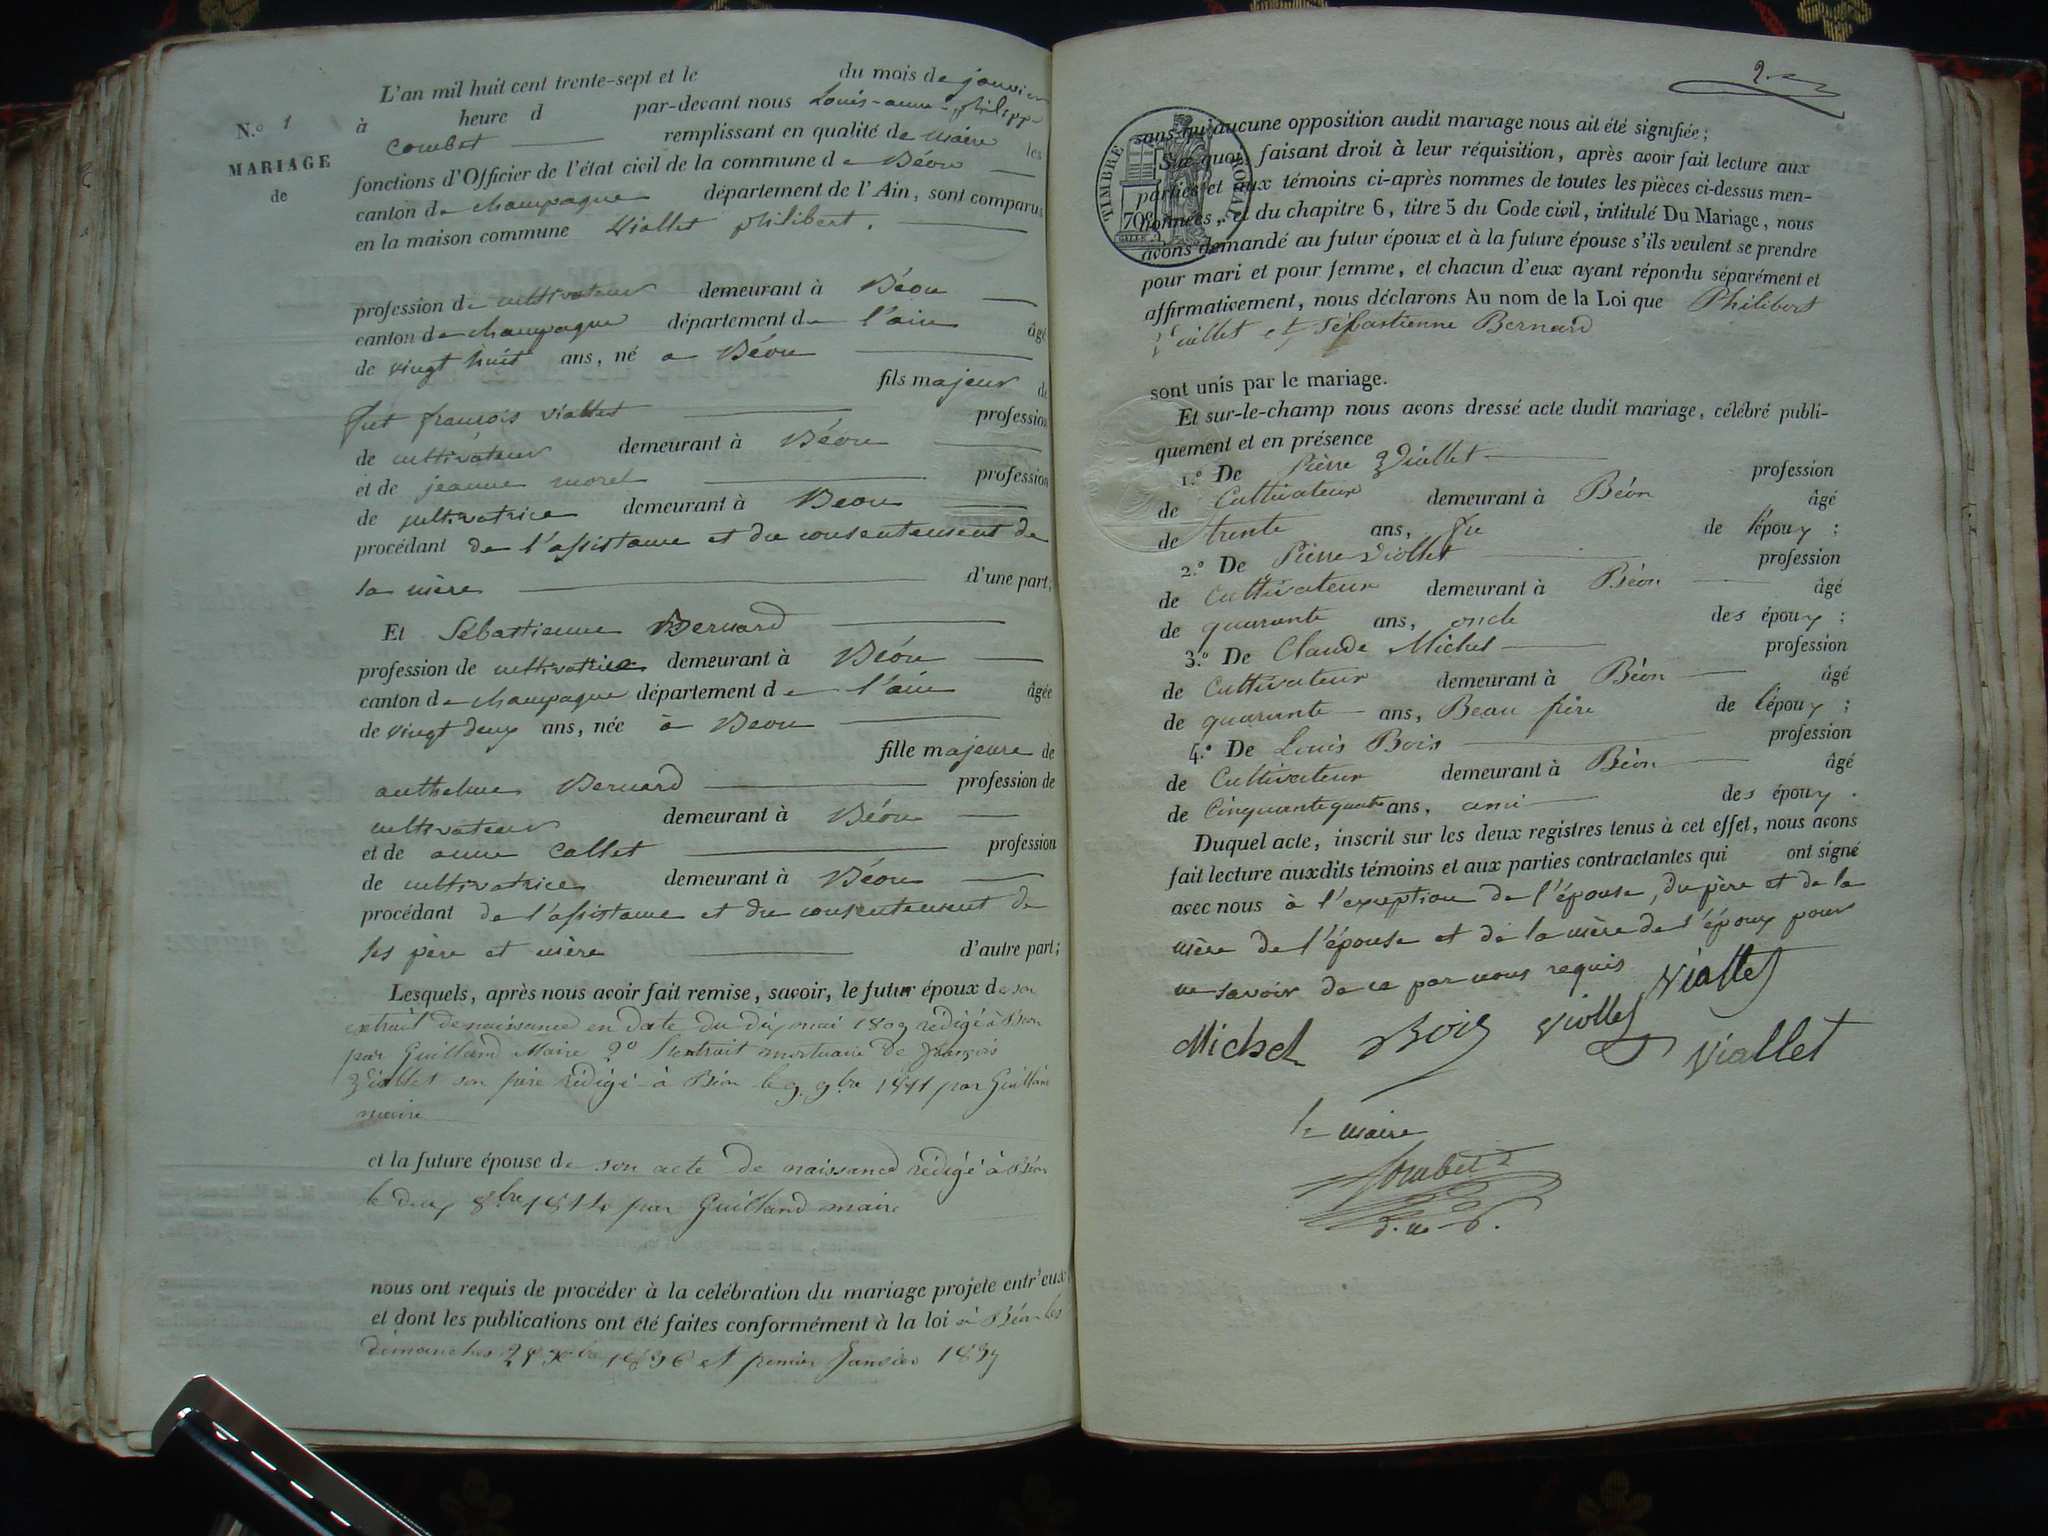 N.o 1
MARIAGE
de
L'an mil huit cent trente-sept et le du mois de janvier
à heure d par-devant nous Louis-anne-philippe
Combet remplissant en qualité de maire les
fonctions d'Officier de l'état civil de la commune de Béon
canton de champagne département de l'Ain, sont comparus
en la maison commune Viallet philibert.
profession de cultivateur demeurant à Béon
canton de champagne département de l'ain âgé
de vingt huit ans, né a Béon
fils majeur de
fut françois viallet profession
de cultivateur demeurant à Béon
et de jeanne morel profession
de cultivatrice demeurant à Beon
procédant de l'assistance et du consentement de
sa mère d'une part;
Et Sébastienne Bernard
profession de cultivatrice demeurant à Béon
canton de champagne département de l'ain âgée
de vingt deux ans, née à Beon
fille majeure de
anthelme Bernard profession de
cultivateur demeurant à Béon
et de anne Collet profession
de cultivatrice demeurant à Béon
procédant de l'assistance et du consentement de
ses père et mère d'autre part;
Lesquels, après nous avoir fait remise, savoir, le futur époux de son
extrait de naissance en date du dix mai 1809 rédigé à Béon
par Guilland Maire 2o l'extrait mortuaire de françois
Viallet son père rédigé à Béon le 9 9bre 1811 par Guilland
maire
et la future épouse de son acte de naissance rédigé à Béon
le deux 8bre 1814 par Guilland maire
nous ont requis de procéder à la célébration du mariage projeté entr'eux
et dont les publications ont été faites conformément à la loi à Béon les
dimanches 25 Xbre 1836 et premier Janvier 1837
2
TIMBRE ROYAL
70c
sans qu'aucune opposition audit mariage nous ait été signifiée;
Sur quoi, faisant droit à leur réquisition, après avoir fait lecture aux
parties et aux témoins ci-après nommes de toutes les pièces ci-dessus men-
tionnées, et du chapitre 6, titre 5 du Code civil, intitulé Du Mariage, nous
avons demandé au futur époux et à la future épouse s'ils veulent se prendre
pour mari et pour femme, et chacun d'eux ayant répondu séparément et
affirmativement, nous déclarons Au nom de la Loi que Philibert
Viallet et Sébastienne Bernard
sont unis par le mariage.
Et sur-le-champ nous avons dressé acte dudit mariage, célébré publi-
quement et en présence
1.o De Pierre Viallet profession
de Cultivateur demeurant à Béon âgé
de trente ans, de l'époux;
2.o De Pierre Viollet profession
de Cultivateur demeurant à Béon âgé
de quarante ans, oncle des époux;
3.o De Claude Michel profession
de Cultivateur demeurant à Béon âgé
de quarante ans, Beau frère de l'époux;
4.o De Louis Bois profession
de Cultivateur demeurant à Béon âgé
de Cinquante quatre ans, ami des époux.
Duquel acte, inscrit sur les deux registres tenus à cet effet, nous avons
fait lecture auxdits témoins et aux parties contractantes qui ont signé
avec nous à l'exception de l'épouse, du père et de la
mère de l'épouse et de la mère de l'époux pour
ne savoir de ce par nous requis Viallet
Michel Bois Viollet Viallet
le maire
Combet